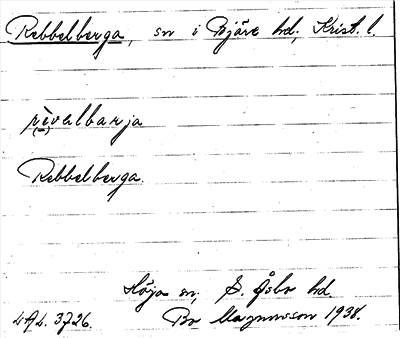 Rebbelberga, sn i Bjäre hd, Krist. l.
rèvalbarja
Rebbelberga.
Höja sn, S. Åsbo hd.
LAL. 3726. Bo Magnusson 1938.